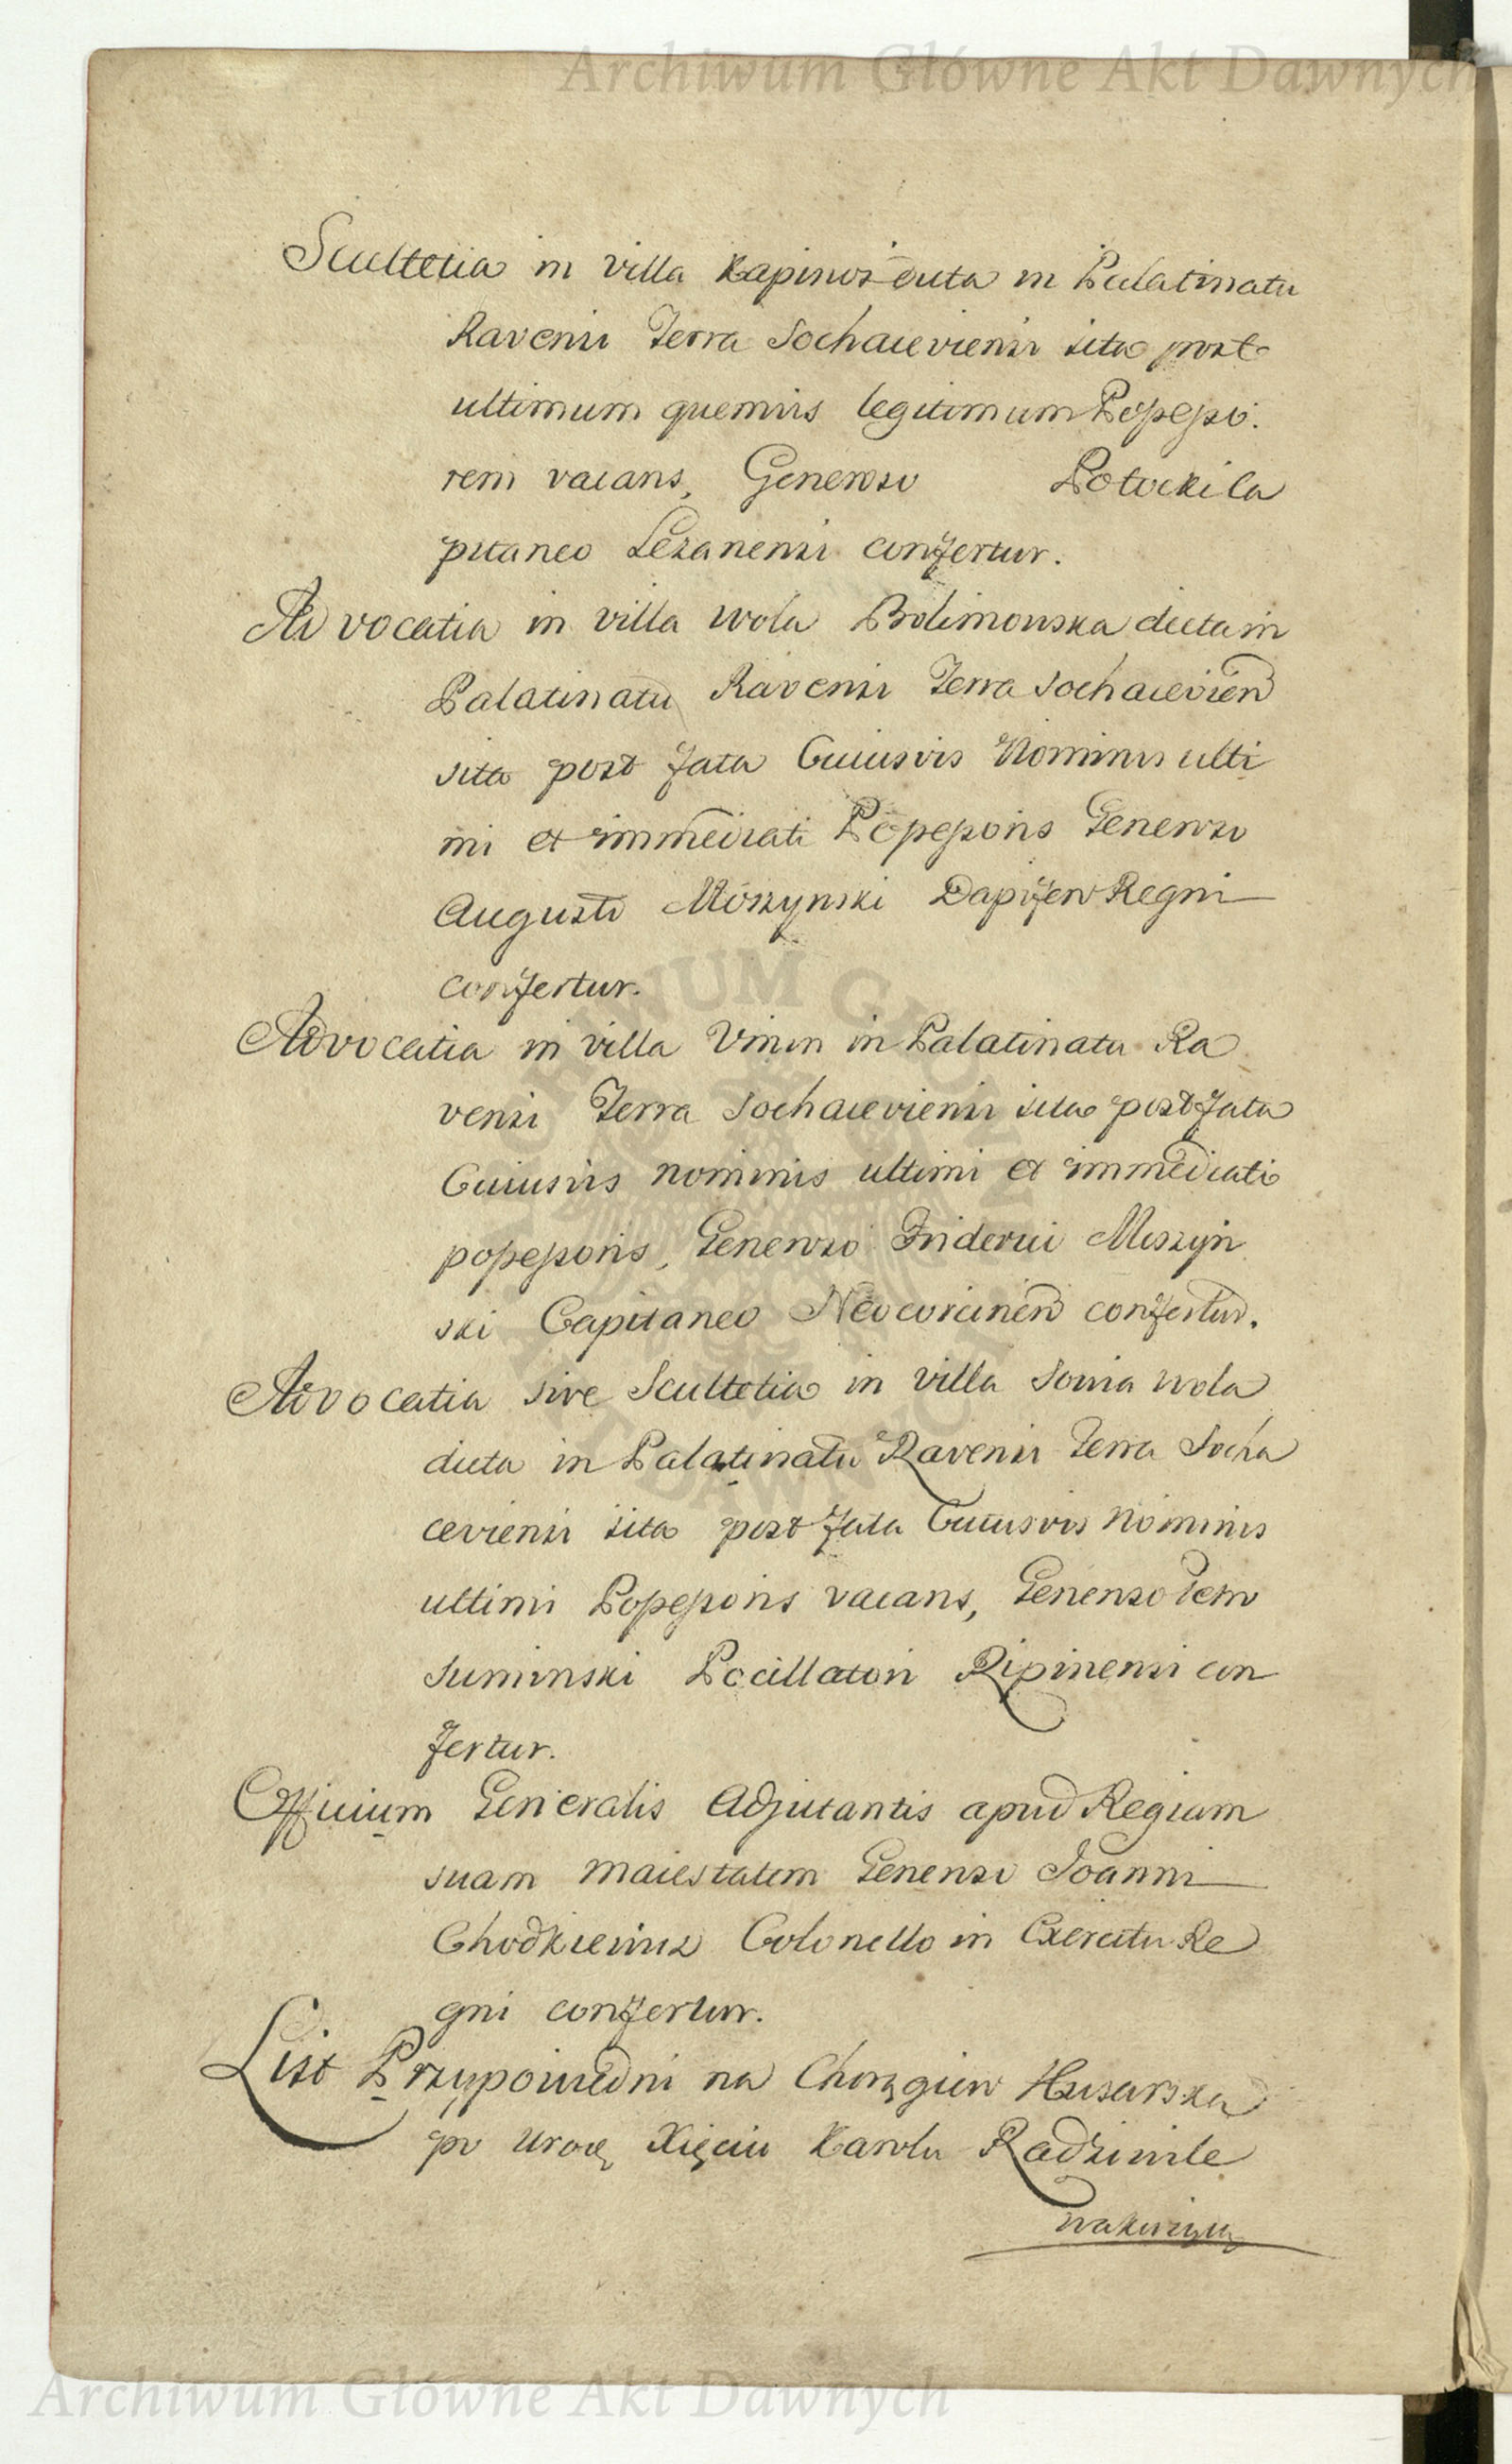 Archiwum Główne Akt Dawnych
Scultetia in villa Kapinos dicta in Palatinatu
Ravensi Terra Sochacieviensi sita post
ultimum quemvis legitimum Possesso-
rem vacans, Generoso Potocki Ca
pitaneo Leżanensi confertur.
Advocatia in villa Wola Bolimowska dicta in
Palatinatu Ravensi Terra Sochacievien
sita post fata Cuiusvis Nominis ulti
mi et immediati Possessoris Generoso
Augusto Moszynski Dapifero Regni
confertur.
Advocatia in villa in Palatinatu Ra
vensi Terra Sochacieviensi sita post fata
Cuiusvis nominis ultimi et immediati
possessoris, Generoso Friderici Moszyn
ski Capitaneo Neocorcinen confertur.
Advocatia sive Scultetia in villa Sowia wola
dicta in Palatinatu Ravensi Terra Socha
ceviensi sita post fata Cuiusvis Nominis
ultimi Possessoris vacans, Generoso Petro
Suminski Pocillatori Ripinensi con
fertur.
Officium Generalis Adjutantis apud Regiam
suam Maiestatem Generoso Joanni
Chodkiewicz Colonello in Exercitu Re
gni confertur.
List Przypowiedni na Chorągiew Husarska
po Urodz. Xięciu Karolu Radziwile
wakuiącą
Archiwum Główne Akt Dawnych